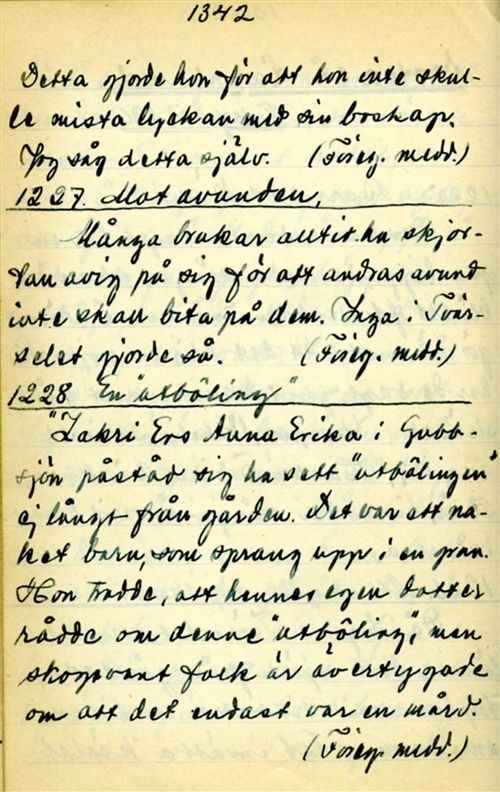 1342
Detta gjorde hon för att hon inte skul-
le mista lyckan med sin boskap.
Jag såg detta själv. (Föreg. medd.)
1227. Mot avunden,
Många brukar alltid ha skjor-
tan avig på sig för att andras avund
inte skall bita på dem. Inga i Tvär-
selet gjorde så. (Föreg. medd.)
1228. En "utböling"
"Zakri Ers Anna Erika i Gubb-
sjön påstod sig ha sett "utbölingen"
ej långt från gården. Det var ett na-
ket barn, som sprang upp i en gran.
Hon trodde, att hennes egen dotter
rådde om denne "utböling", men
skogsvant folk är övertygade
om att det endast var en mård.
(Föreg. medd.)